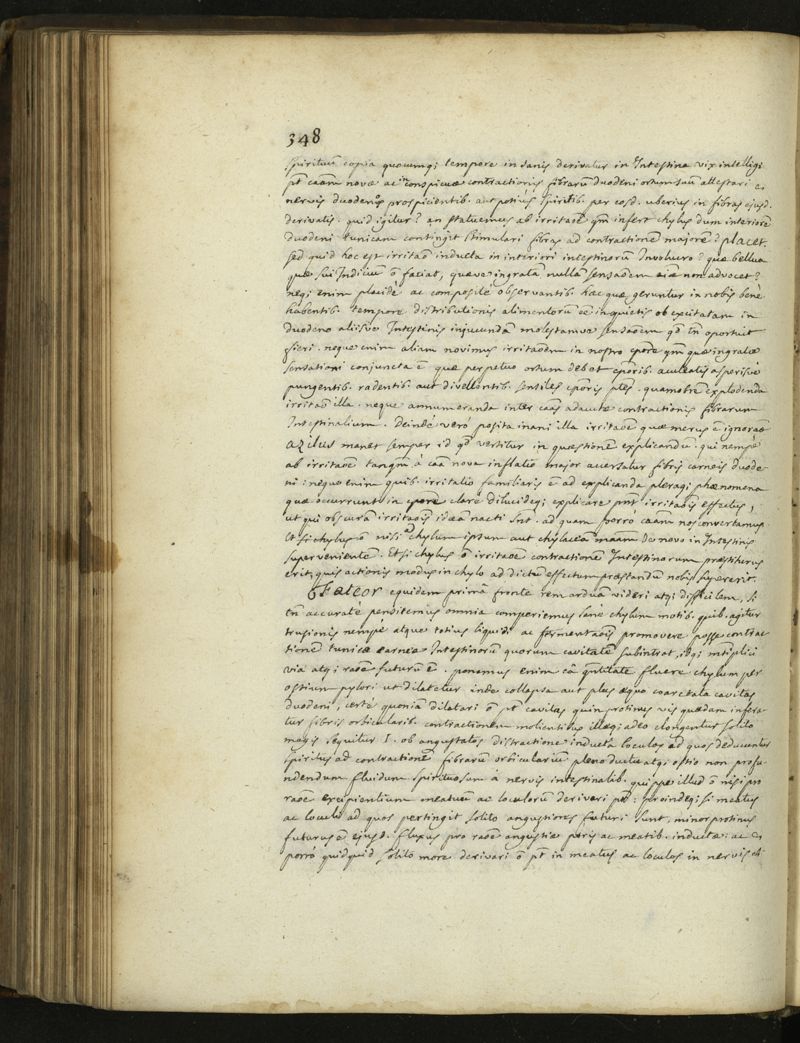 348
spirituũ copia quocumq; tempore in sanis derivatur in Intestina vix intelligi
pt caãm novæ ac conspicuæ contractionis fibrarũ duodeni ortum suũ attestari a
nervis duodeno prospicientib. aut potius spiritib. per eosd. uberius in fibras ejusd.
derivatis. quid igitur? an statuemus ab irritaõe qm̃ infert chylus dum interiorẽ
duodeni tunicam contingit stimulari fibras ad contractionẽ majorẽ? placet.
sed quid hoc est irritaõ inducta in interiori intestinorũ Involucro? quæ bellua
quæ sui Indiciũ õ faciat, quæve ingratã nullã sensaõem aĩæ non advocet?
neq; enim placide ac composite observantib. hæc quæ geruntur in nobis benè
habentib. tempore distributionis alimentorũ eẽ inquietis ob excitatam in
duodeno aliisve Intestinis injucundã molestamve sensaõem qd tñ oportuit
fieri. neque enim aliam novimus irritaõem in nostro cpore qm̃ quæ ingratæ
sensationi conjuncta ẽ quæ perpetuo ortum debet cporib. aculeatis asperisve
pungentib. radentib. aut divellentib. sentiles cporis ptes. quamobrẽ explodenda
irritaõ illa. neque annumeranda inter caãs adauctæ contractionis fibrarum
Intestinalium. Deindè verò posita inani illa irritaõe quæ merus ẽ ignorae
azilus manet semper id qd vertitur in quæstionẽ explicandũ. qui nempè
ab irritaõe tanqm̃ à caã nova inflatio major aversatur fibris carneis duode-
ni: neque enim quib. irritatio familiaris ẽ ad explicanda pleraq; phænomena
quæ occurrunt in cpore clarè dilucideq; explicare pnt irritaõis effectus,
ut qui obscurã irritaõis idæã nacti snt. ad quam porrò caãm nos convertamus.
Et si chylus õ nisi chylum ipsum aut chylaceã maam de novo in Intestinis
supervenientẽ. Et si chylus õ irritaõe contractionẽ Intestinorum præstiturus
erit, quis actionis modus in chylo ad dictũ effectum præstandũ nobis supererit.
Fateor equidem primâ fronte rem arduã videri atq; difficilem, si
tñ accuratè penditemus omnia comperiemus sanè chylum motib. quib. agitur
trusionis nempè atque totius liquidi ac fermentaõis promovere posse contrac-
tionẽ tunicæ carneæ Intestinorũ quorum cavitatẽ subintrat, idq; mtiplici
via atq; raõe futurũ ẽ. ponamus enim eâ qntitate fluere chylum per
ostium pylori ut dilatetur inde collapsa aut plus æquo coarctata cavitas
duodeni, certè quoniã dilatari õ pt cavitas quin protinus vis quædam infera-
tur fibris orbicularib. contractionem molientibus illæq; adeo elongentur solito
magis sequitur I. ob angustatos distractione inductâ loculos ad quos deducuntur
spiritus ad contractionẽ fibrarũ orbiculariũ pleno ductu atq; ostio non profu-
ndendum fluidum spirituosum à nervis intestinalib. quippe illud õ nisi pro
raõe excipientium meatuũ ac loculorũ derivari pt: proindeq; si meatus
ac loculi ad quos pertingit solito angustiores futuri sunt, minor protinus
futurus ẽ ejusd. fluxus pro raõe angustiæ poris ac meatib. inductæ: ac
porrò quidquid solito more derivari õ pt in meatus ac loculos in nervis